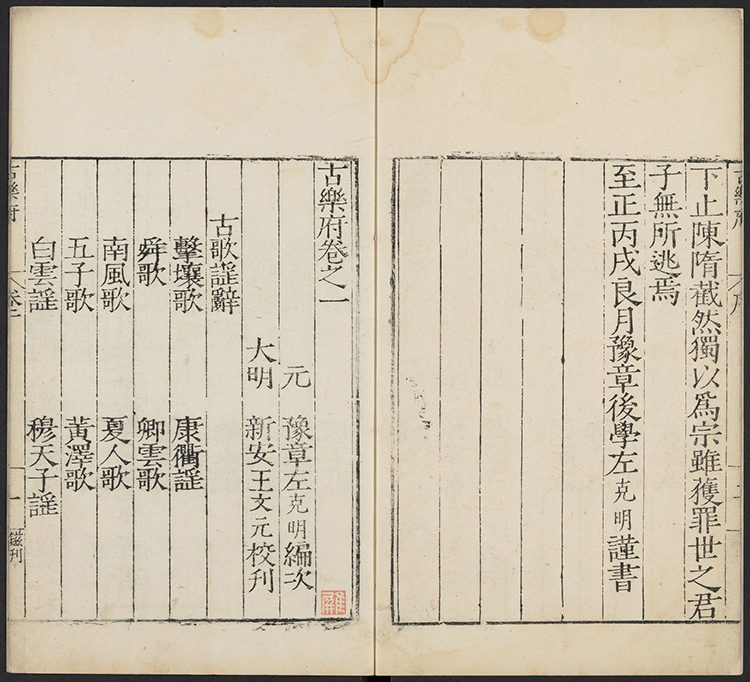 古樂府
序
二
下止陳隋截然獨以為宗雖獲罪世之君
子無所逃焉
至正丙戌良月豫章後學左克明謹書
古樂府卷之一
元　豫章左克明編次
大明　新安王文元校刊
古歌謠辭
擊壤歌　康衢謠
舜歌　卿雲歌
南風歌　夏人歌
五子歌　黃澤歌
白雲謠　穆天子謠
古樂府
卷一
一